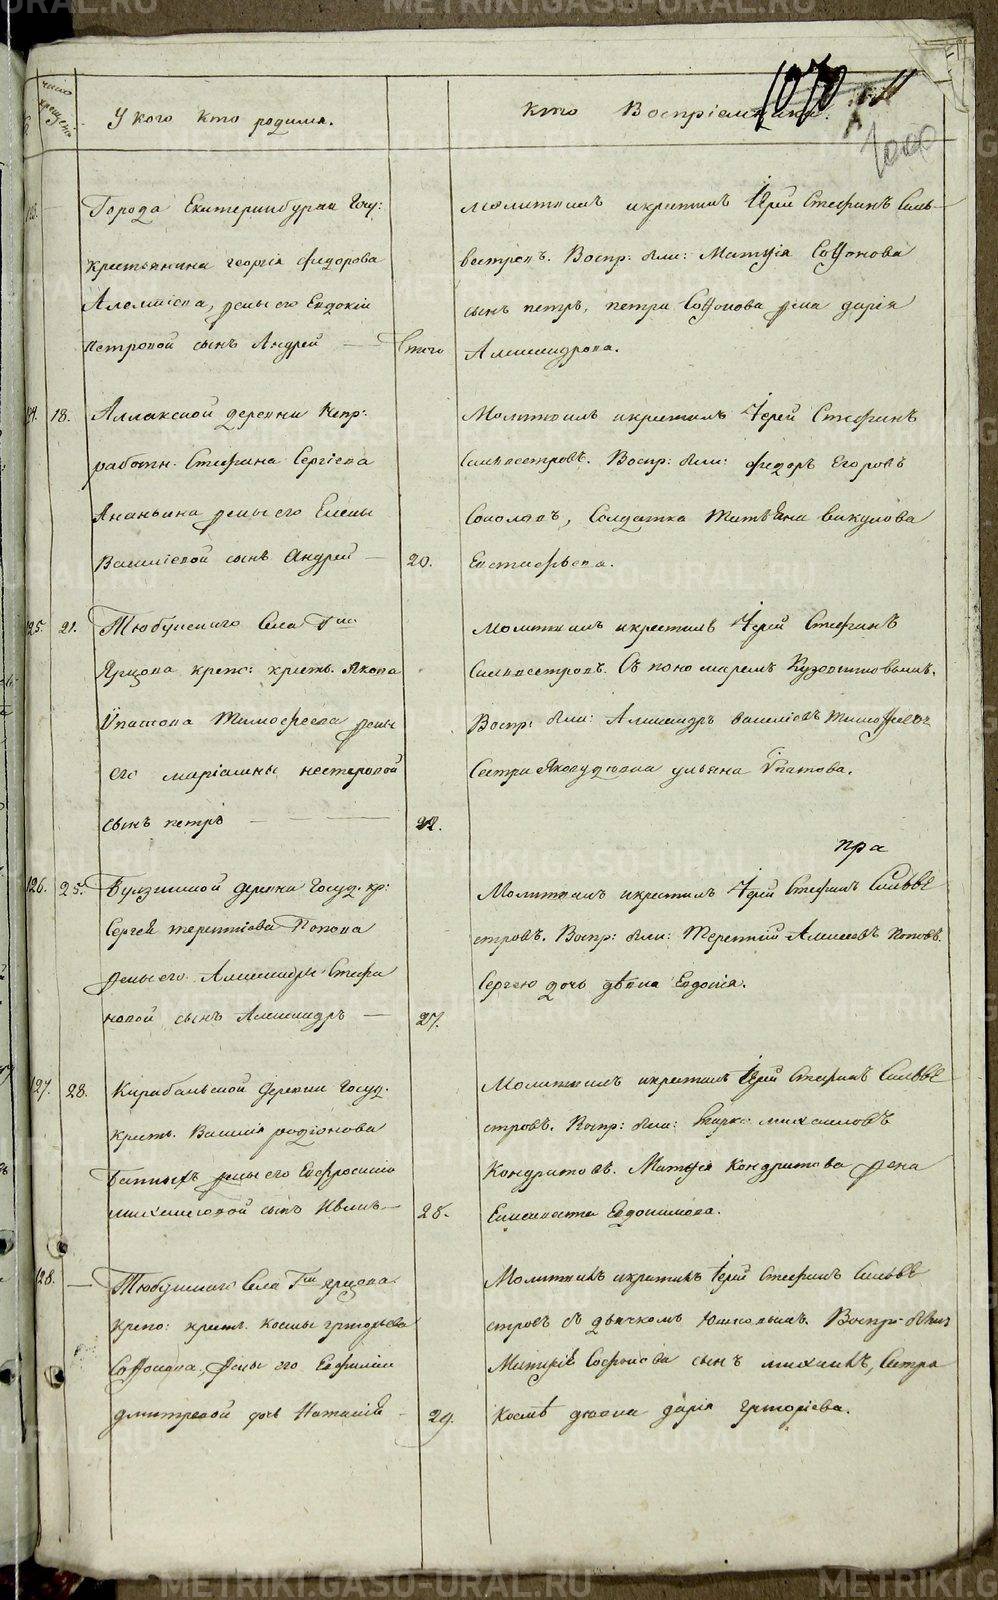 METRIKI.GASO-URAL.RU
число крещенія
У кого кто родился.
Кто Воспріемники.
1070
1000
Города Екатеринбурга Госу:
крестьянина георгія федорова
жены его Евдокіи
петровой сынъ Андрей — Того
Молитвилъ икрестилъ Іерей Стефанъ Силь-
вестровъ. Воспр: были: Матѳія Софонова
сынъ петръ, петра Софонова жена дарія
Александрова.
18.
деревни Непр:
работн. Стефана Сергіева
Ананьина жены его Елены
Василіевой сынъ Андрей — 20.
Молитвилъ икрестилъ Іерей Стефанъ
Сильвестровъ. Воспр: были: федоръ Егоровъ
Соколовъ, Солдатка Татіана викулова
Евстафьева.
125. 21. Тюбунскаго Села Гна
Ярцова креп: крест. Якова
Ипатова Тимофеева жены
его маріамны нестеровой
сынъ петръ — 22.
Молитвилъ икрестилъ Іерей Стефанъ
Сильвестровъ. Съ пономаремъ
Воспр: были: Александръ василіевъ Тимофеевъ
Сестра Якова дѣвка ульяна Ипатова.
126. 25. деревни Госуд. кр:
Сергея терентіева Попова
жены его Александры Стефа
новой сынъ Александръ — 27.
пра
Молитвилъ икрестилъ Іерей Стефанъ Сильве
стровъ. Воспр: были: Терентій Алексеевъ Поповъ.
Сергею дочь дѣвка Евдокія.
127. 28. Карабольской деревни Госуд.
крест. Василія родіонова
жены его Евфросиніи
михаиловой сынъ Иванъ — 28.
Молитвилъ икрестилъ Іерей Стефанъ Сильве
стровъ. Воспр: были: михаиловъ
Кондратовъ. Матѳія Кондратова жена
Елисавета Евдокимова.
128. — Тюбунскаго Села Гна ярцова
крепо: крест. Космы григорьева
Софонова, жены его Евфиміи
дмитревой дочь Наталія — 29.
Молитвилъ икрестилъ Іерей Стефанъ Сильве
стровъ съ дьячкомъ Воспр: были
Матѳія Софонова сынъ михаилъ, Сестра
Космѣ дѣвка дарія григоріева.
METRIKI.GASO-URAL.RU